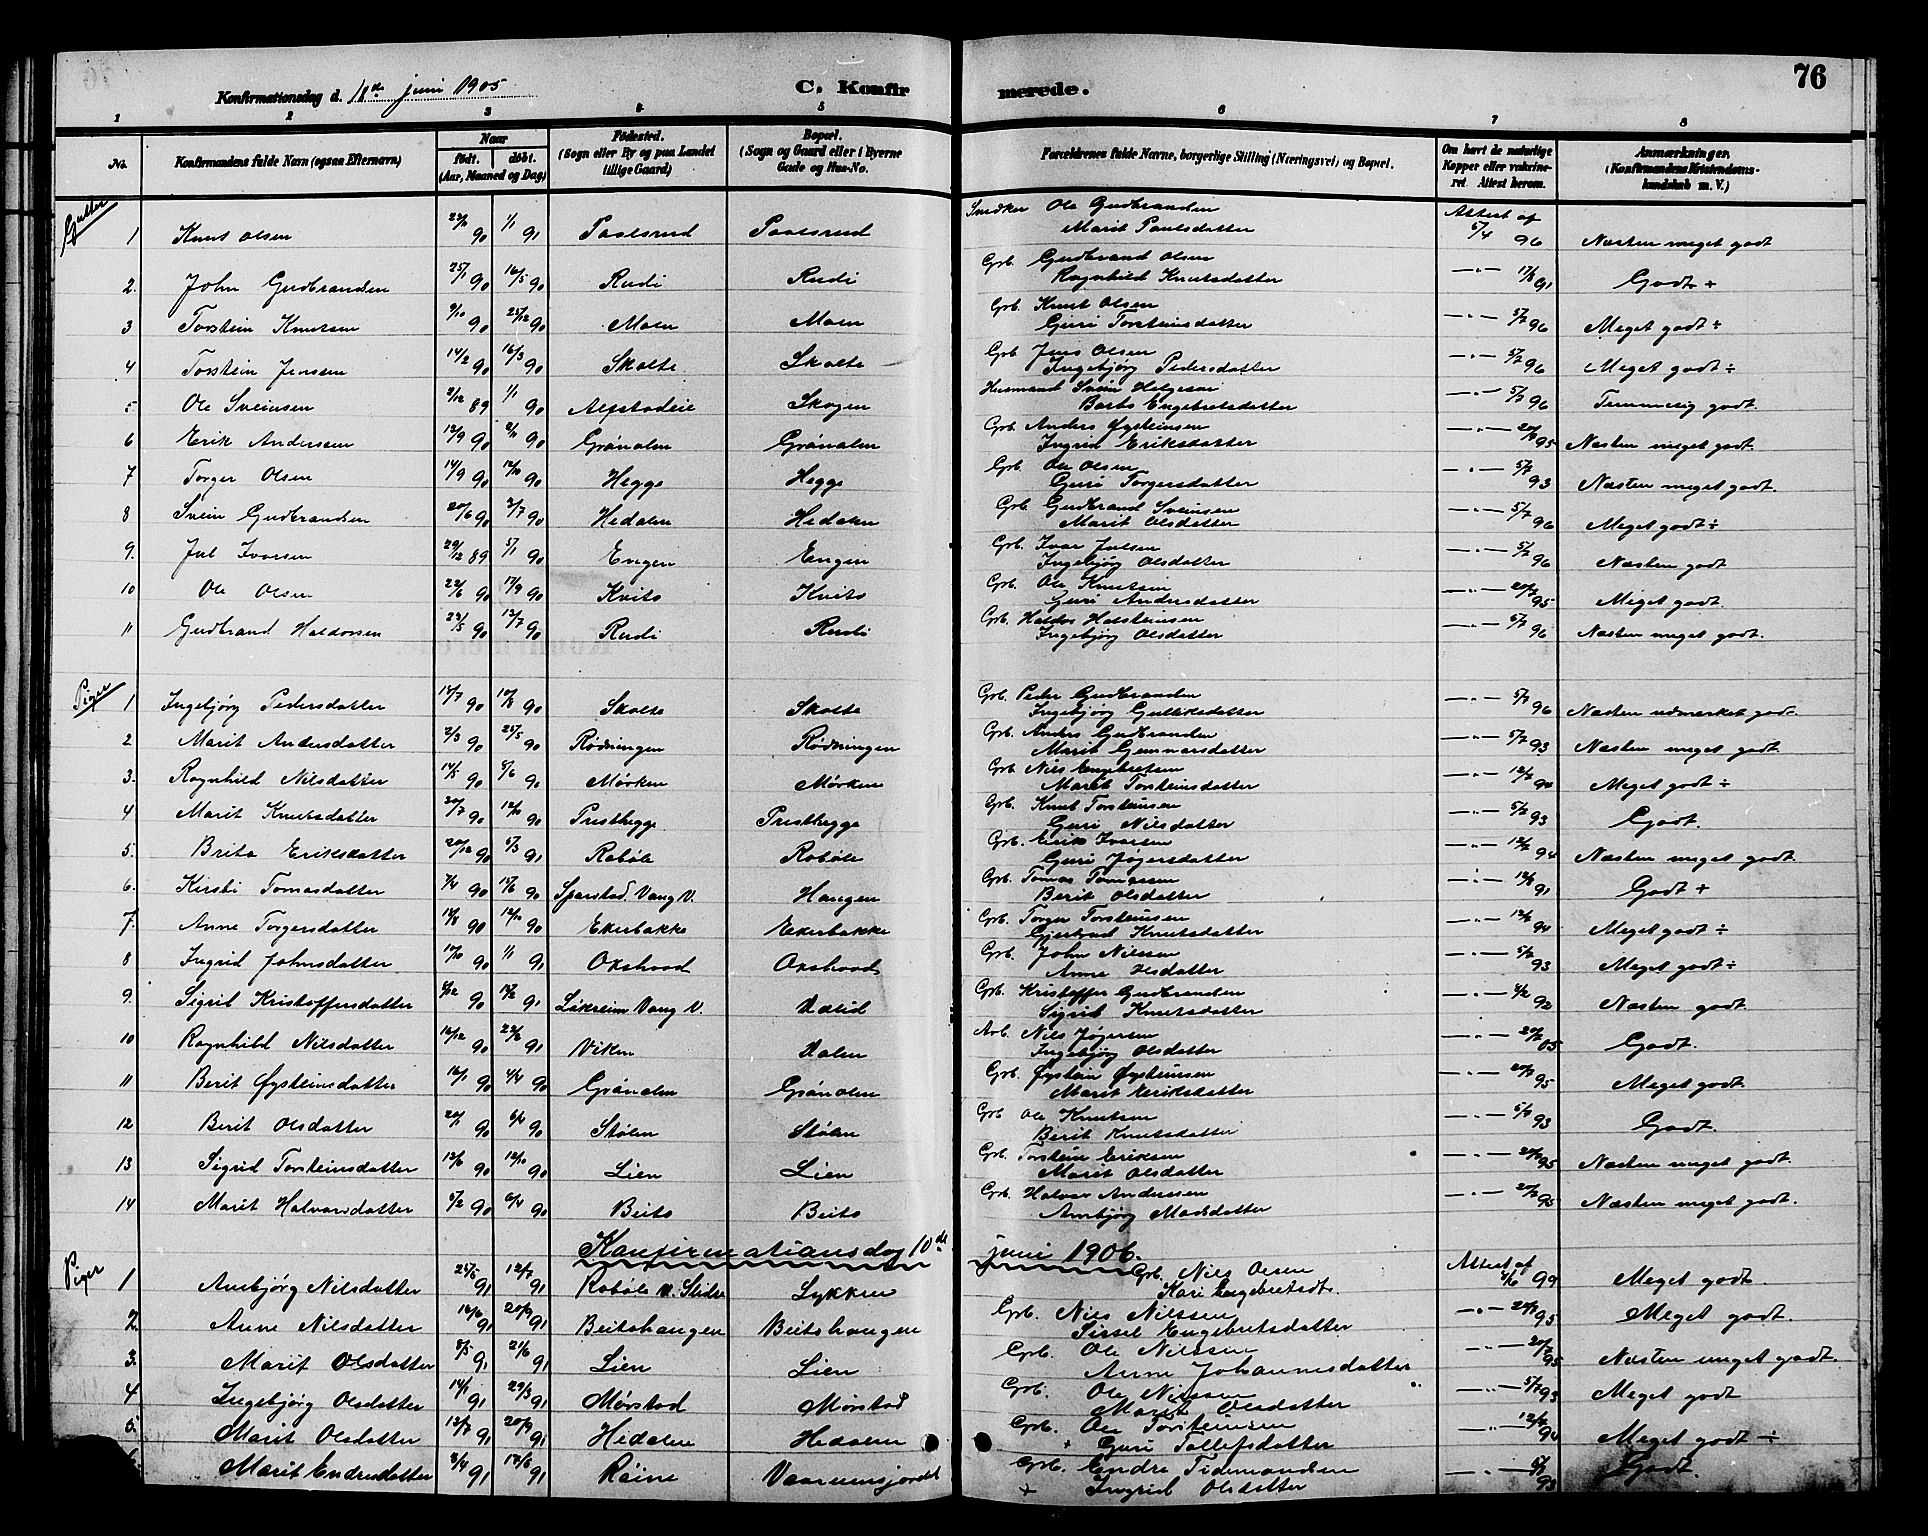 76
Konfirmationsdag d. 11te juni 1905 C. Konfirmerede.
1 2 3 4 5 6 7 8
No. Konfirmandens fulde Navn (ogsaa Efternavn) Naar født. døbt. (Aar, Maaned og Dag) Fødested. (Sogn eller By og paa Landet tillige Gaard) Bopæl. (Sogn og Gaard eller i Byerne Gade og Hus-No. Forældrenes fulde Navne, borgerlige Stilling (Næringsvei) og Bopæl. Om havt de naturlige Kopper eller vakcineret. Attest herom. Anmærkninger. (Konfirmandens Kristendomskundskab m. V.)
Gutter
1 Knut Olsen 90 1/1 91 Paalsrud Paalsrud Snedker Ole Gudbrandsen Attest af
Marit Paulsdatter 5/4 96 Næsten meget godt
2. John Gudbrandsen 25/1 90 16/5 90 Rudi Rudi Grb. Gudbrand Olsen
Ragnhild Knutsdatter 91 Godt +
3 Torstein Knutsen 9/10 90 25/12 90 Moen Moen Grb. Knut Olsen
Guri Torsteinsdatter 5/7 96 Meget godt ÷
4 Torstein Jensen 14/2 90 16/3 90 Skolte Skolte Grb. Jens Olsen
Ingebjørg Pedersdatter 5/7 96 Meget godt ÷
5 Ole Sveinsen 2/12 89 1/1 90 Alfstadeie Skogen Husmand Svein Helgesen
Barbo Engebretsdatter 5/7 96 Temmelig godt.
6 Erik Anderssen 12/9 90 90 Grønolen Grønolen Grb. Anders Øysteinsen
Ingrid Eriksdatter 95 Næsten meget godt.
7 Torger Olsen 14/9 90 12/10 90 Hegge Hegge Grb. Ole Olsen
Guri Torgersdatter 5/7 93 Næsten meget godt.
8 Svein Gudbrandsen 20/6 90 7/7 90 Hedalen Hedalen Grb. Gudbrand Sveinsen
Marit Olsdatter 5/7 96 Meget godt ÷
9. Jul Ivarsen 29/12 89 5/1 90 Engen Engen Grb. Ivar Julsen
Ingebjørg Olsdatter 5/7 96 Næsten godt
10 Ole Olsen 22/6 90 17/9 90 Kvito Kvito Grb. Ole Knutsen
Guri Andersdatter 95 Meget godt.
11 Gudbrand Haldorsen 23/5 90 13/7 90 Rudi Rudi Grb. Haldor Halsteinsen
Ingebjørg Olsdatter 5/7 96 Næsten meget godt.
Piger
1 Ingebjørg Pedersdatter 90 90 Skolte Skolte Grb. Peder Gudbrandsen
Ingebjørg Gulliksdatter 5/7 96 Næsten udmerket godt.
2 Marit Andersdatter 2/3 90 25/5 90 Rødningen Rødningen Grb. Anders Gudbrandsen
Marit Gunnarsdatter 5/7 93 Næsten meget godt
3. Ragnhild Nilsdatter 14/5 90 90 Mørken Mørken Grb. Nils Engebretsen
Marit Torsteinsdatter Meget godt ÷
4 Marit Knutsdatter 90 12/10 90 Presthegge Presthegge Grb. Knut Torsteinsen
Guri Nilsdatter 5/7 93 Godt.
5. Brita Eriksdatter 20/12 90 91 Robøle Robøle Grb. Erik Ivarsen
Guri Jøgersdatter 94 Næsten meget godt.
6. Kirsti Tomasdatter 7/4 90 15/6 90 Sparstad Vang V. Haugen Grb. Tomas Tomassen
Berit Olsdatter 91 Godt +
7. Anne Torgersdatter 90 12/10 90 Ekerbakke Ekerbakke Grb. Torger Torsteinsen
Gjertrud Knutsdatter 94 Meget godt ÷
8 Ingrid Johnsdatter 90 1/1 91 Oxhovd Oxhovd Grb. John Nilssen
Anne Olsdatter 5/7 93 Meget godt ÷
9. Sigrid Kristoffersdatter 90 91 Løkreim Vang V. Grb. Kristoffer Gudbrandsen
Sigrid Knutsdatter 92 Næsten godt
10 Ragnhild Nilsdatter 16/12 90 91 Viken Dalen Arb. Nils Jøgersen
Ingebjørg Olsdatter 05 Godt.
11 Berit Øysteinsdatter 16/1 90 4/4 90 Grønolen Grønolen Grb. Øystein Øysteinsen
Marit Eriksdatter 95 Meget godt
12 Berit Olsdatter 90 6/4 90 Stølen Stølen Grb Ole Knutsen
Berit Knutsdatter 93 Godt.
13 Sigrid Torsteinsdatter 90 12/10 90 Lien Lien Grb. Torstein Eriksen
Marit Olsdatter 95 Næsten meget godt.
14 Marit Halvorsdatter 5/2 90 6/4 90 Beito Beito Grb. Halvor Anderssen
Ambjørg Madsdatter 95 Næsten meget godt.
Konfirmationsdag 10de juni 1906.
Piger
1 Ambjørg Nilsdatter 25/5 91 12/7 91 Robøle N. Slidre Lykken Grb. Nils Olsen Attest af
Kari Engebretsdt. 99 Meget godt.
2. Anne Nilsdatter 91 20/9 91 Beitohaugen Beitohaugen Grb. Nils Nilssen
Sissel Engebretsdatter 95 Meget godt.
3. Marit Olsdatter 8/5 91 21/6 91 Lien Lien Grb. Ole Nilssen
Anne Johannesdatter 95 Næsten meget godt.
4 Ingebjørg Olsdatter 14/1 91 29/3 91 Mørstad Mørstad Grb. Ole Nilssen
Marit Olsdatter 5/7 93 Meget godt
5. Marit Olsdatter 13/7 91 20/9 91 Hedalen Hedalen Grb. Ole Torsteinsen
+ Guri Tollefsdatter 94 Meget godt ÷
6. Marit Endresdatter 3/4 91 17/5 91 Røine Grb. Endre Tidemandsen
+ Ingrid Olsdatter 5/7 93 Godt.